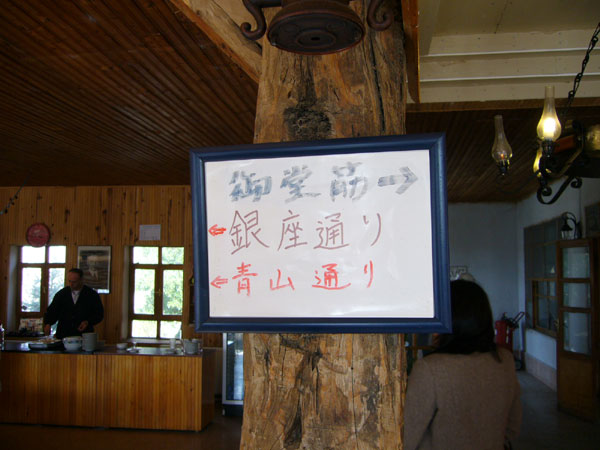 御堂筋→
←銀座通り
←青山通り